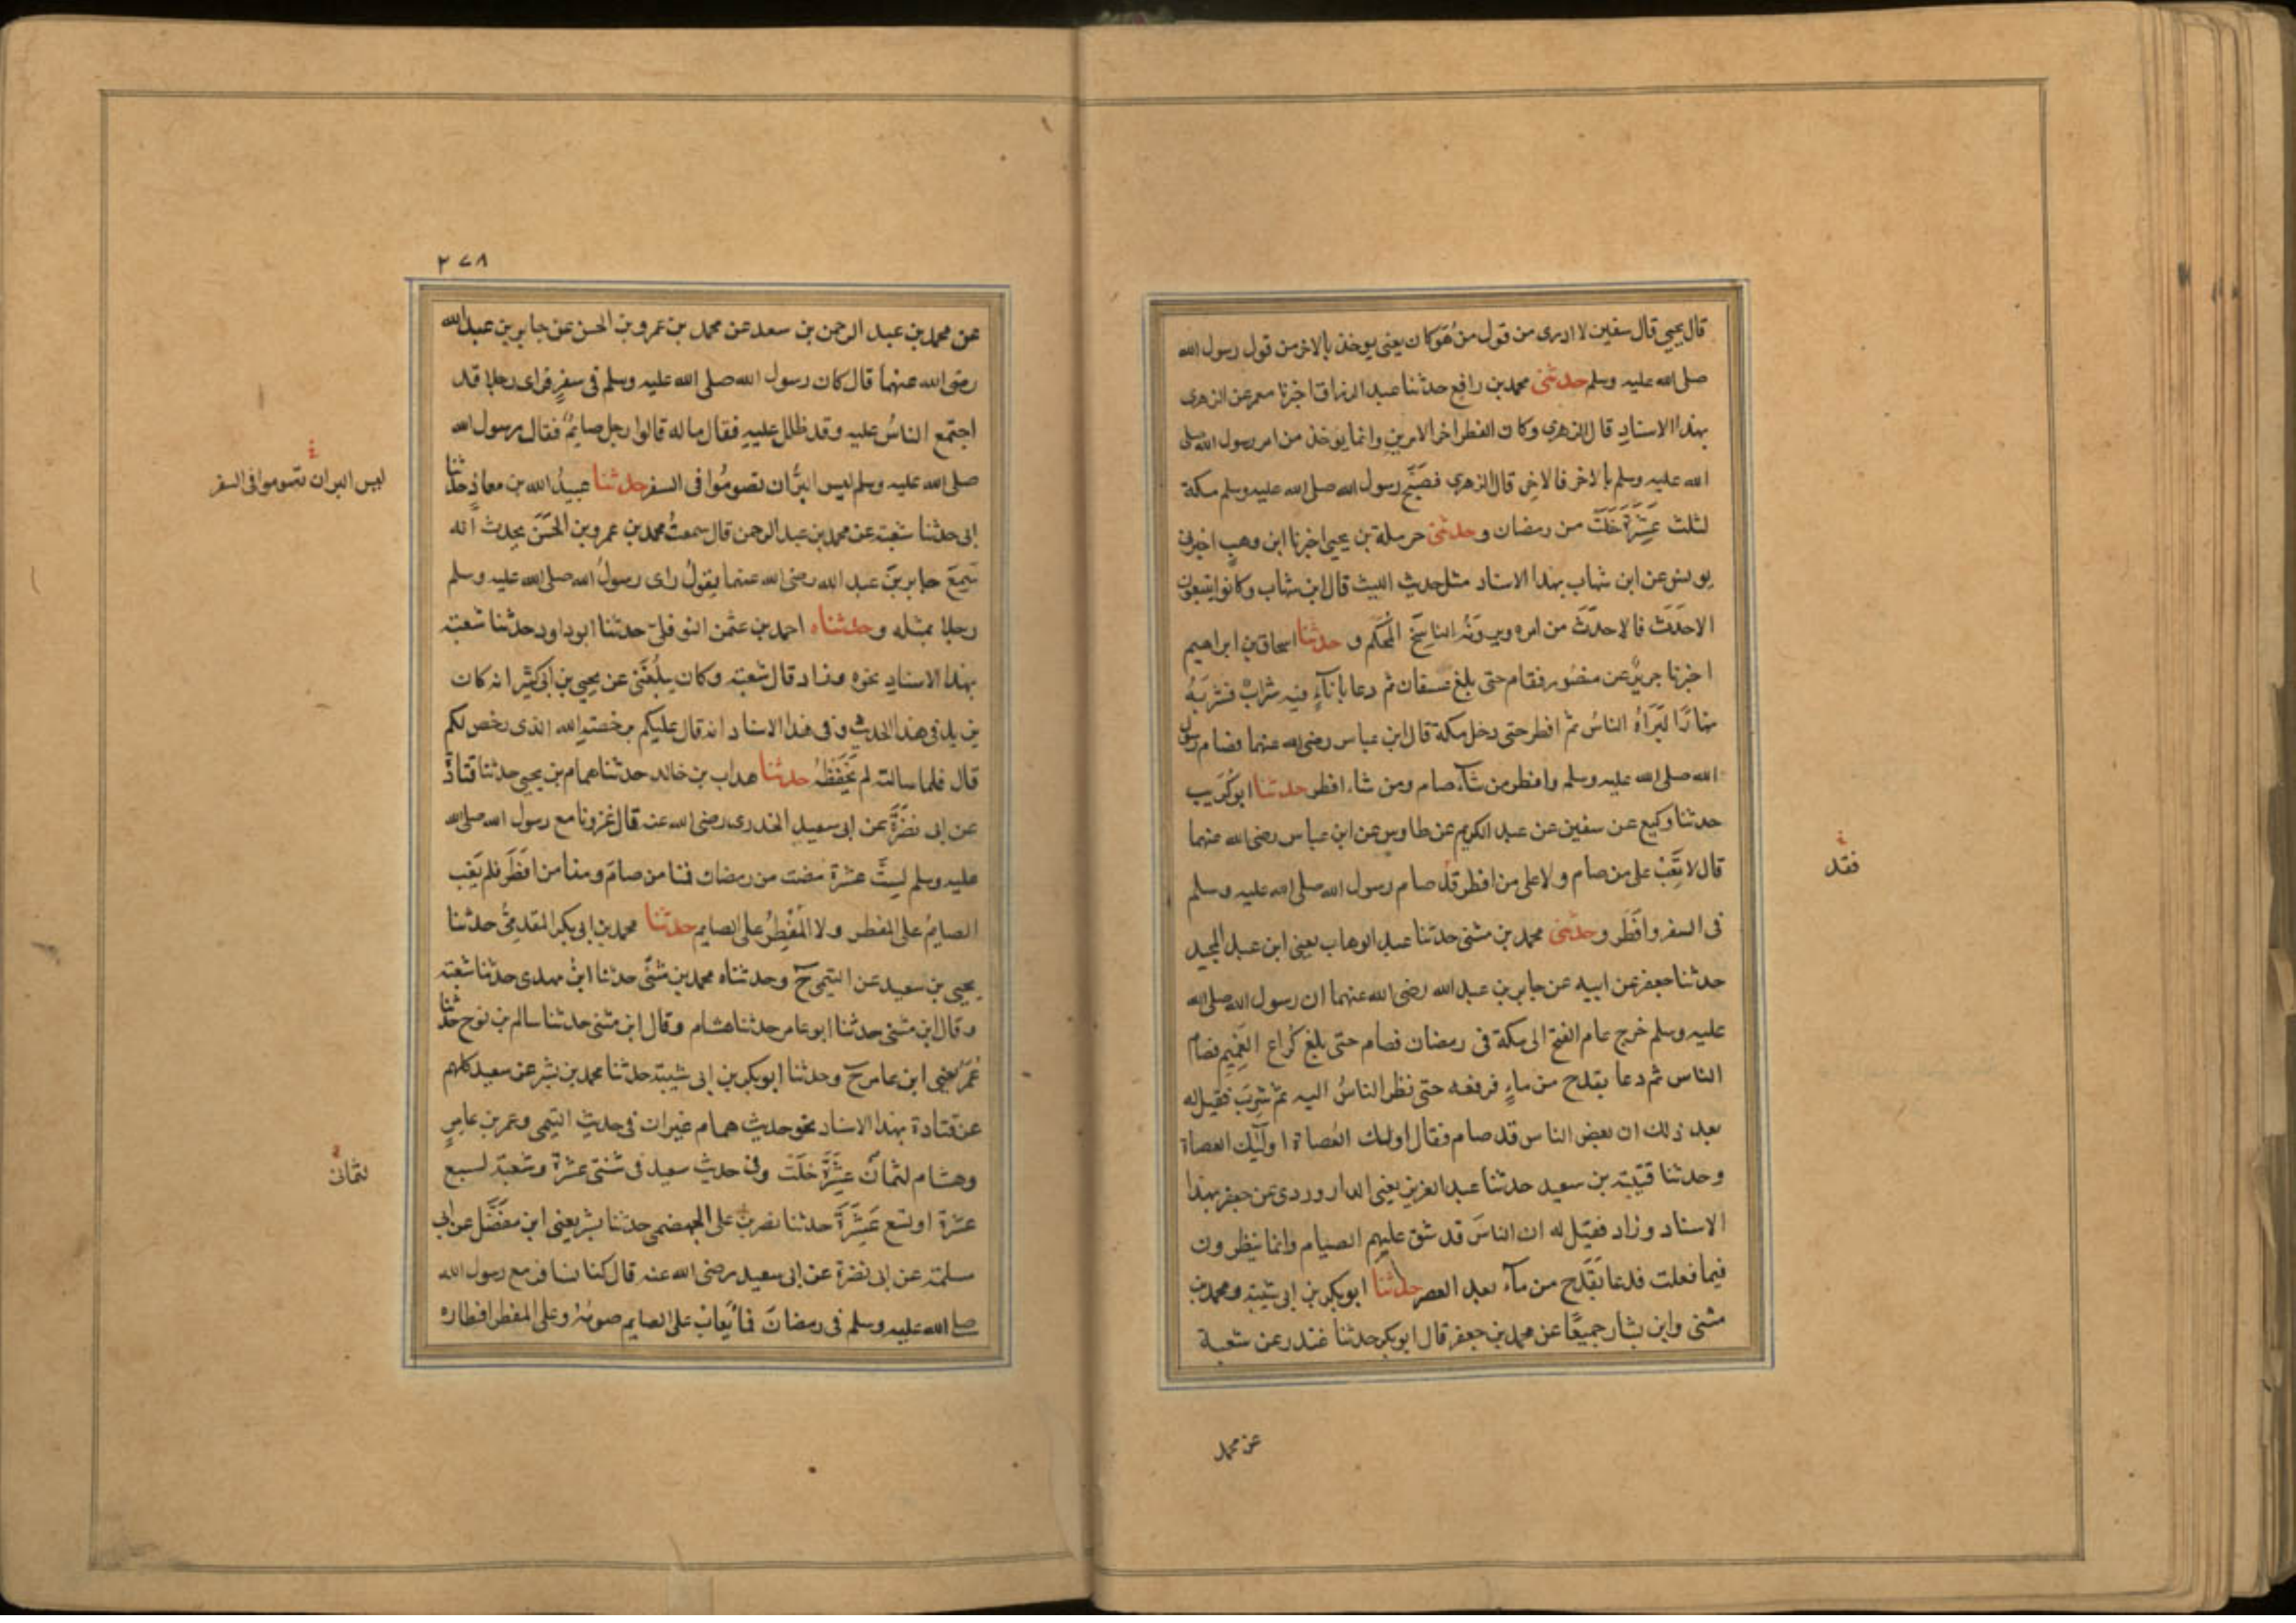 قال يحيى قال سفين لا ادرى من قول من هو كان يعنى يوخذ بالاخر من قول رسول الله
صلى الله عليه وسلم حدثنى محمد بن رافع حدثنا عبد الرزاق اخبرنا معمر عن الزهرى
بهذا الاسناد قال الزهرى وكان الفطر اخر الامرين وانما يوخذ من امر رسول الله صلى
الله عليه وسلم بالاخر فالاخر قال الزهرى فصبح رسول الله صلى الله عليه وسلم مكة
لثلث عشرة خلت من رمضان وحدثنى حرملة بن يحيى اخبرنا ابن وهب اخبرنى
يونس عن ابن شهاب بهذا الاسناد مثل حديث الليث قال ابن شهاب وكانوا يتبعون
الاحدث فالاحدث من امره ويرونه الناسخ المحكم وحدثنا اسحاق بن ابراهيم
اخبرنا جرير عن منصور فقام حتى بلغ عسفان ثم دعا باناء فيه شراب فشربه
نهارا ليراه الناس ثم افطر حتى دخل مكة قال ابن عباس رضى الله عنهما فصام رسول
الله صلى الله عليه وسلم وافطر من شاء صام ومن شاء افطر حدثنا ابو كريب
حدثنا وكيع عن سفين عن عبد الكريم عن طاوس عن ابن عباس رضى الله عنهما
قال لا تعب على من صام ولا على من افطر قد صام رسول الله صلى الله عليه وسلم
فقد
فى السفر وافطر وحدثنى محمد بن مثنى حدثنا عبد الوهاب يعنى ابن عبد المجيد
حدثنا جعفر عن ابيه عن جابر بن عبد الله رضى الله عنهما ان رسول الله صلى الله
عليه وسلم خرج عام الفتح الى مكة فى رمضان فصام حتى بلغ كراع الغميم فصام
الناس ثم دعا بقدح من ماء فرفعه حتى نظر الناس اليه ثم شرب فقيل له
بعد ذلك ان بعض الناس قد صام فقال اولئك العصاة اولئك العصاة
وحدثنا قتيبة بن سعيد حدثنا عبد العزيز يعنى الدراوردى عن جعفر بهذا
الاسناد وزاد فقيل له ان الناس قد شق عليهم الصيام وانما ينظرون
فيما فعلت فدعا بقدح من ماء بعد العصر حدثنا ابو بكر بن ابى شيبة ومحمد بن
مثنى وابن بشار جميعا عن محمد بن جعفر قال ابو بكر حدثنا غندر عن شعبة
عن محمد
٢٧٨
عن محمد بن عبد الرحمن بن سعد عن محمد بن عمرو بن الحسن عن جابر بن عبد الله
رضى الله عنهما قال كان رسول الله صلى الله عليه وسلم فى سفر فراى رجلا قد
اجتمع الناس عليه وقد ظلل عليه فقال ما له قالوا رجل صايم فقال رسول الله
صلى الله عليه وسلم ليس البر ان تصوموا فى السفر حدثنا عبيد الله بن معاذ حدثنا
ليس البر ان تصوموا فى السفر
ابى حدثنا شعبة عن محمد بن عبد الرحمن قال سمعت محمد بن عمرو بن الحسن يحدث انه
سمع جابر بن عبد الله رضى الله عنهما يقول راى رسول الله صلى الله عليه وسلم
رجلا بمثله وحدثناه احمد بن عثمن النوفلى حدثنا ابو داود حدثنا شعبة
بهذا الاسناد نحوه وزاد قال شعبة وكان يبلغنى عن يحيى بن ابى كثير انه كان
يزيد فى هذا الحديث وفى هذا الاسناد انه قال عليكم برخصة الله الذى رخص لكم
قال فلما سالته لم يحفظه حدثنا هداب بن خالد حدثنا همام بن يحيى حدثنا قتادة
عن ابى نضرة عن ابى سعيد الخدرى رضى الله عنه قال غزونا مع رسول الله صلى الله
عليه وسلم لست عشرة مضت من رمضان فمنا من صام ومنا من افطر فلم يعب
الصايم على المفطر ولا المفطر على الصايم حدثنا محمد بن ابى بكر المقدمى حدثنا
يحيى بن سعيد عن التيمى ح وحدثناه محمد بن مثنى حدثنا ابن مهدى حدثنا شعبة
وقال ابن مثنى حدثنا ابو عامر حدثنا هشام وقال ابن مثنى حدثنا سالم بن نوح حدثنا
عمر يعنى ابن عامر ح وحدثنا ابو بكر بن ابى شيبة حدثنا محمد بن بشر عن سعيد كلهم
عن قتادة بهذا الاسناد نحو حديث همام غير ان فى حديث التيمى وعمر بن عامر
وهشام لثمان عشرة خلت وفى حديث سعيد فى ثنتى عشرة وشعبة لسبع
لثمانى
عشرة او تسع عشرة حدثنا نصر بن على الجهضمى حدثنا بشر يعنى ابن مفضل عن ابى
سلمة عن ابى نضرة عن ابى سعيد رضى الله عنه قال كنا نسافر مع رسول الله
صلى الله عليه وسلم فى رمضان فما يعاب على الصايم صومه وعلى المفطر افطاره